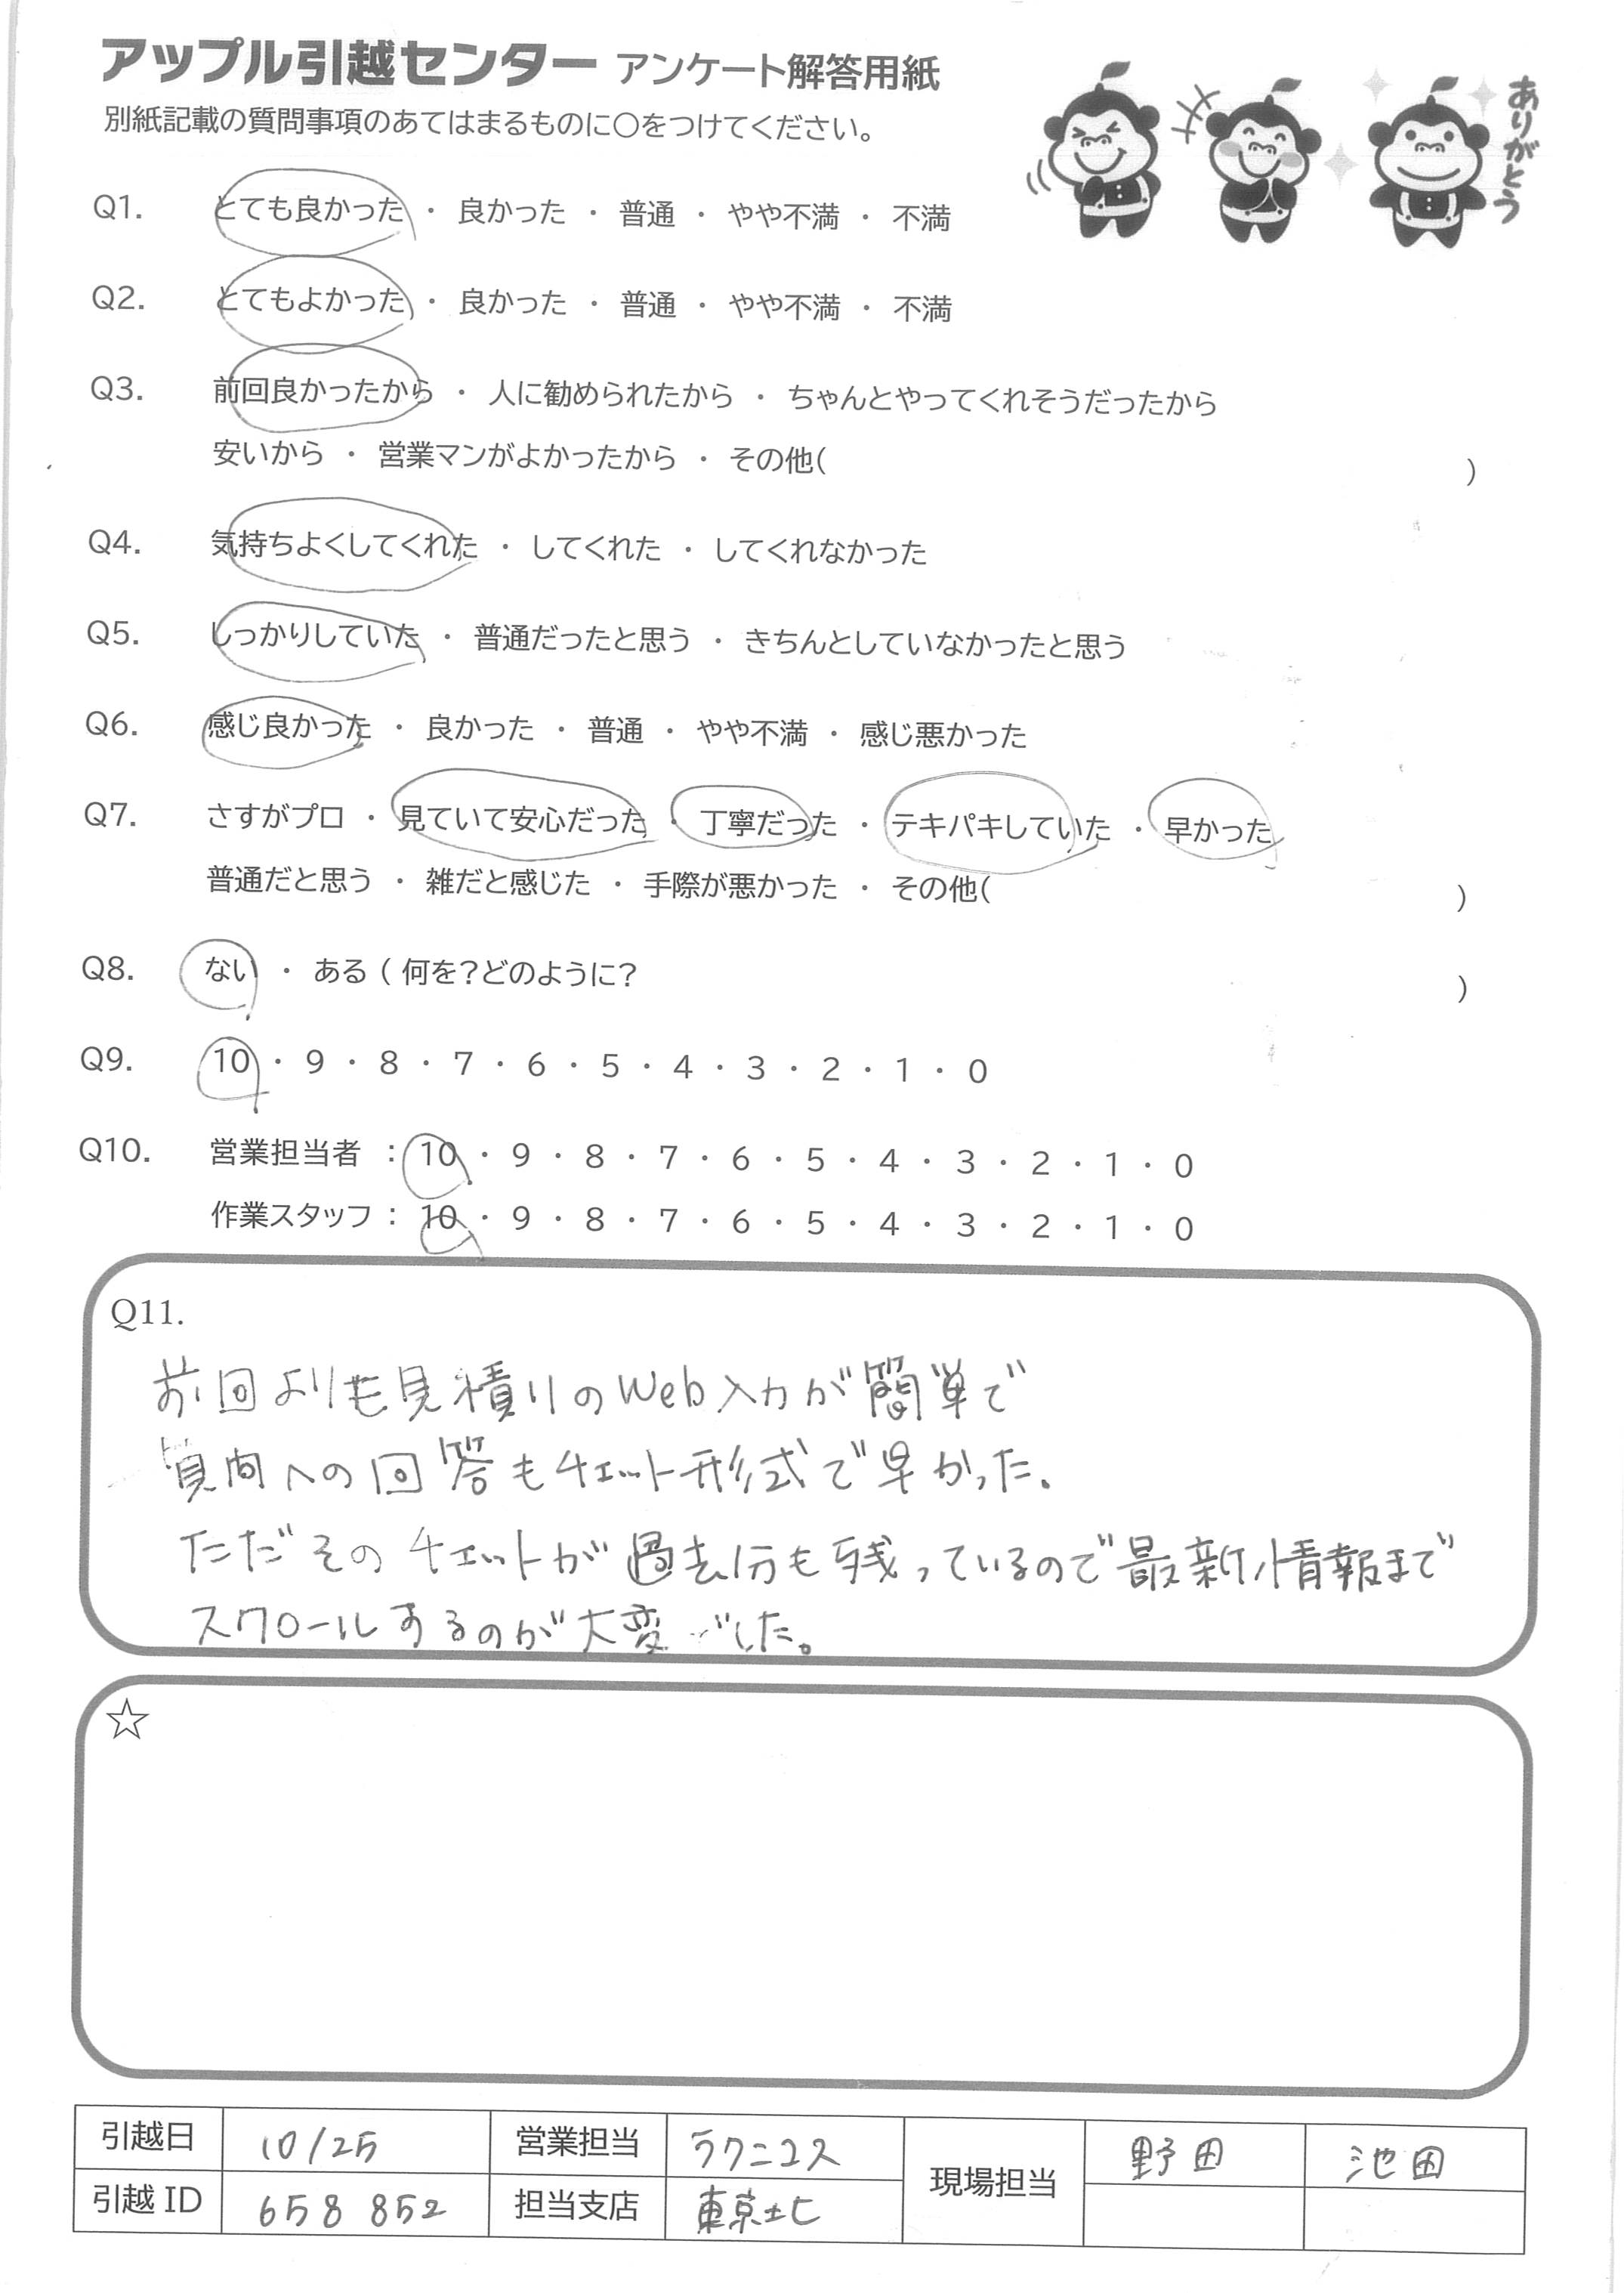 アップル引越センター アンケート解答用紙
ありがとう
別紙記載の質問事項のあてはまるものに○をつけてください。
Q1. とても良かった ・ 良かった ・ 普通 ・ やや不満 ・ 不満
Q2. とてもよかった ・ 良かった ・ 普通 ・ やや不満 ・ 不満
Q3. 前回良かったから ・ 人に勧められたから ・ ちゃんとやってくれそうだったから
安いから ・ 営業マンがよかったから ・ その他( )
Q4. 気持ちよくしてくれた ・ してくれた ・ してくれなかった
Q5. しっかりしていた ・ 普通だったと思う ・ きちんとしていなかったと思う
Q6. 感じ良かった ・ 良かった ・ 普通 ・ やや不満 ・ 感じ悪かった
Q7. さすがプロ ・ 見ていて安心だった ・ 丁寧だった ・ テキパキしていた ・ 早かった
普通だと思う ・ 雑だと感じた ・ 手際が悪かった ・ その他( )
Q8. ない ・ ある ( 何を?どのように? )
Q9. 10 ・ 9 ・ 8 ・ 7 ・ 6 ・ 5 ・ 4 ・ 3 ・ 2 ・ 1 ・ 0
Q10. 営業担当者 : 10 ・ 9 ・ 8 ・ 7 ・ 6 ・ 5 ・ 4 ・ 3 ・ 2 ・ 1 ・ 0
作業スタッフ : 10 ・ 9 ・ 8 ・ 7 ・ 6 ・ 5 ・ 4 ・ 3 ・ 2 ・ 1 ・ 0
Q11.
前回よりも見積りのWeb入力が簡単で
質問への回答もチェット形式で早かった.
ただそのチェットが過去分も残っているので最新情報まで
スクロールするのが大変でした。
☆
引越日 10/25 営業担当 ラクニコス 現場担当 野田 池田
引越 ID 658 852 担当支店 東京北